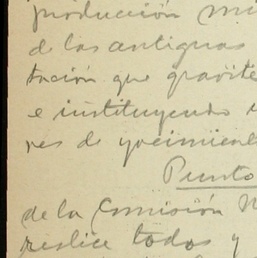 producción mi
de las antiguas
tación que gravite
e instituyendo
res de yacimient
Punto
de la Comisión N
realice todos y